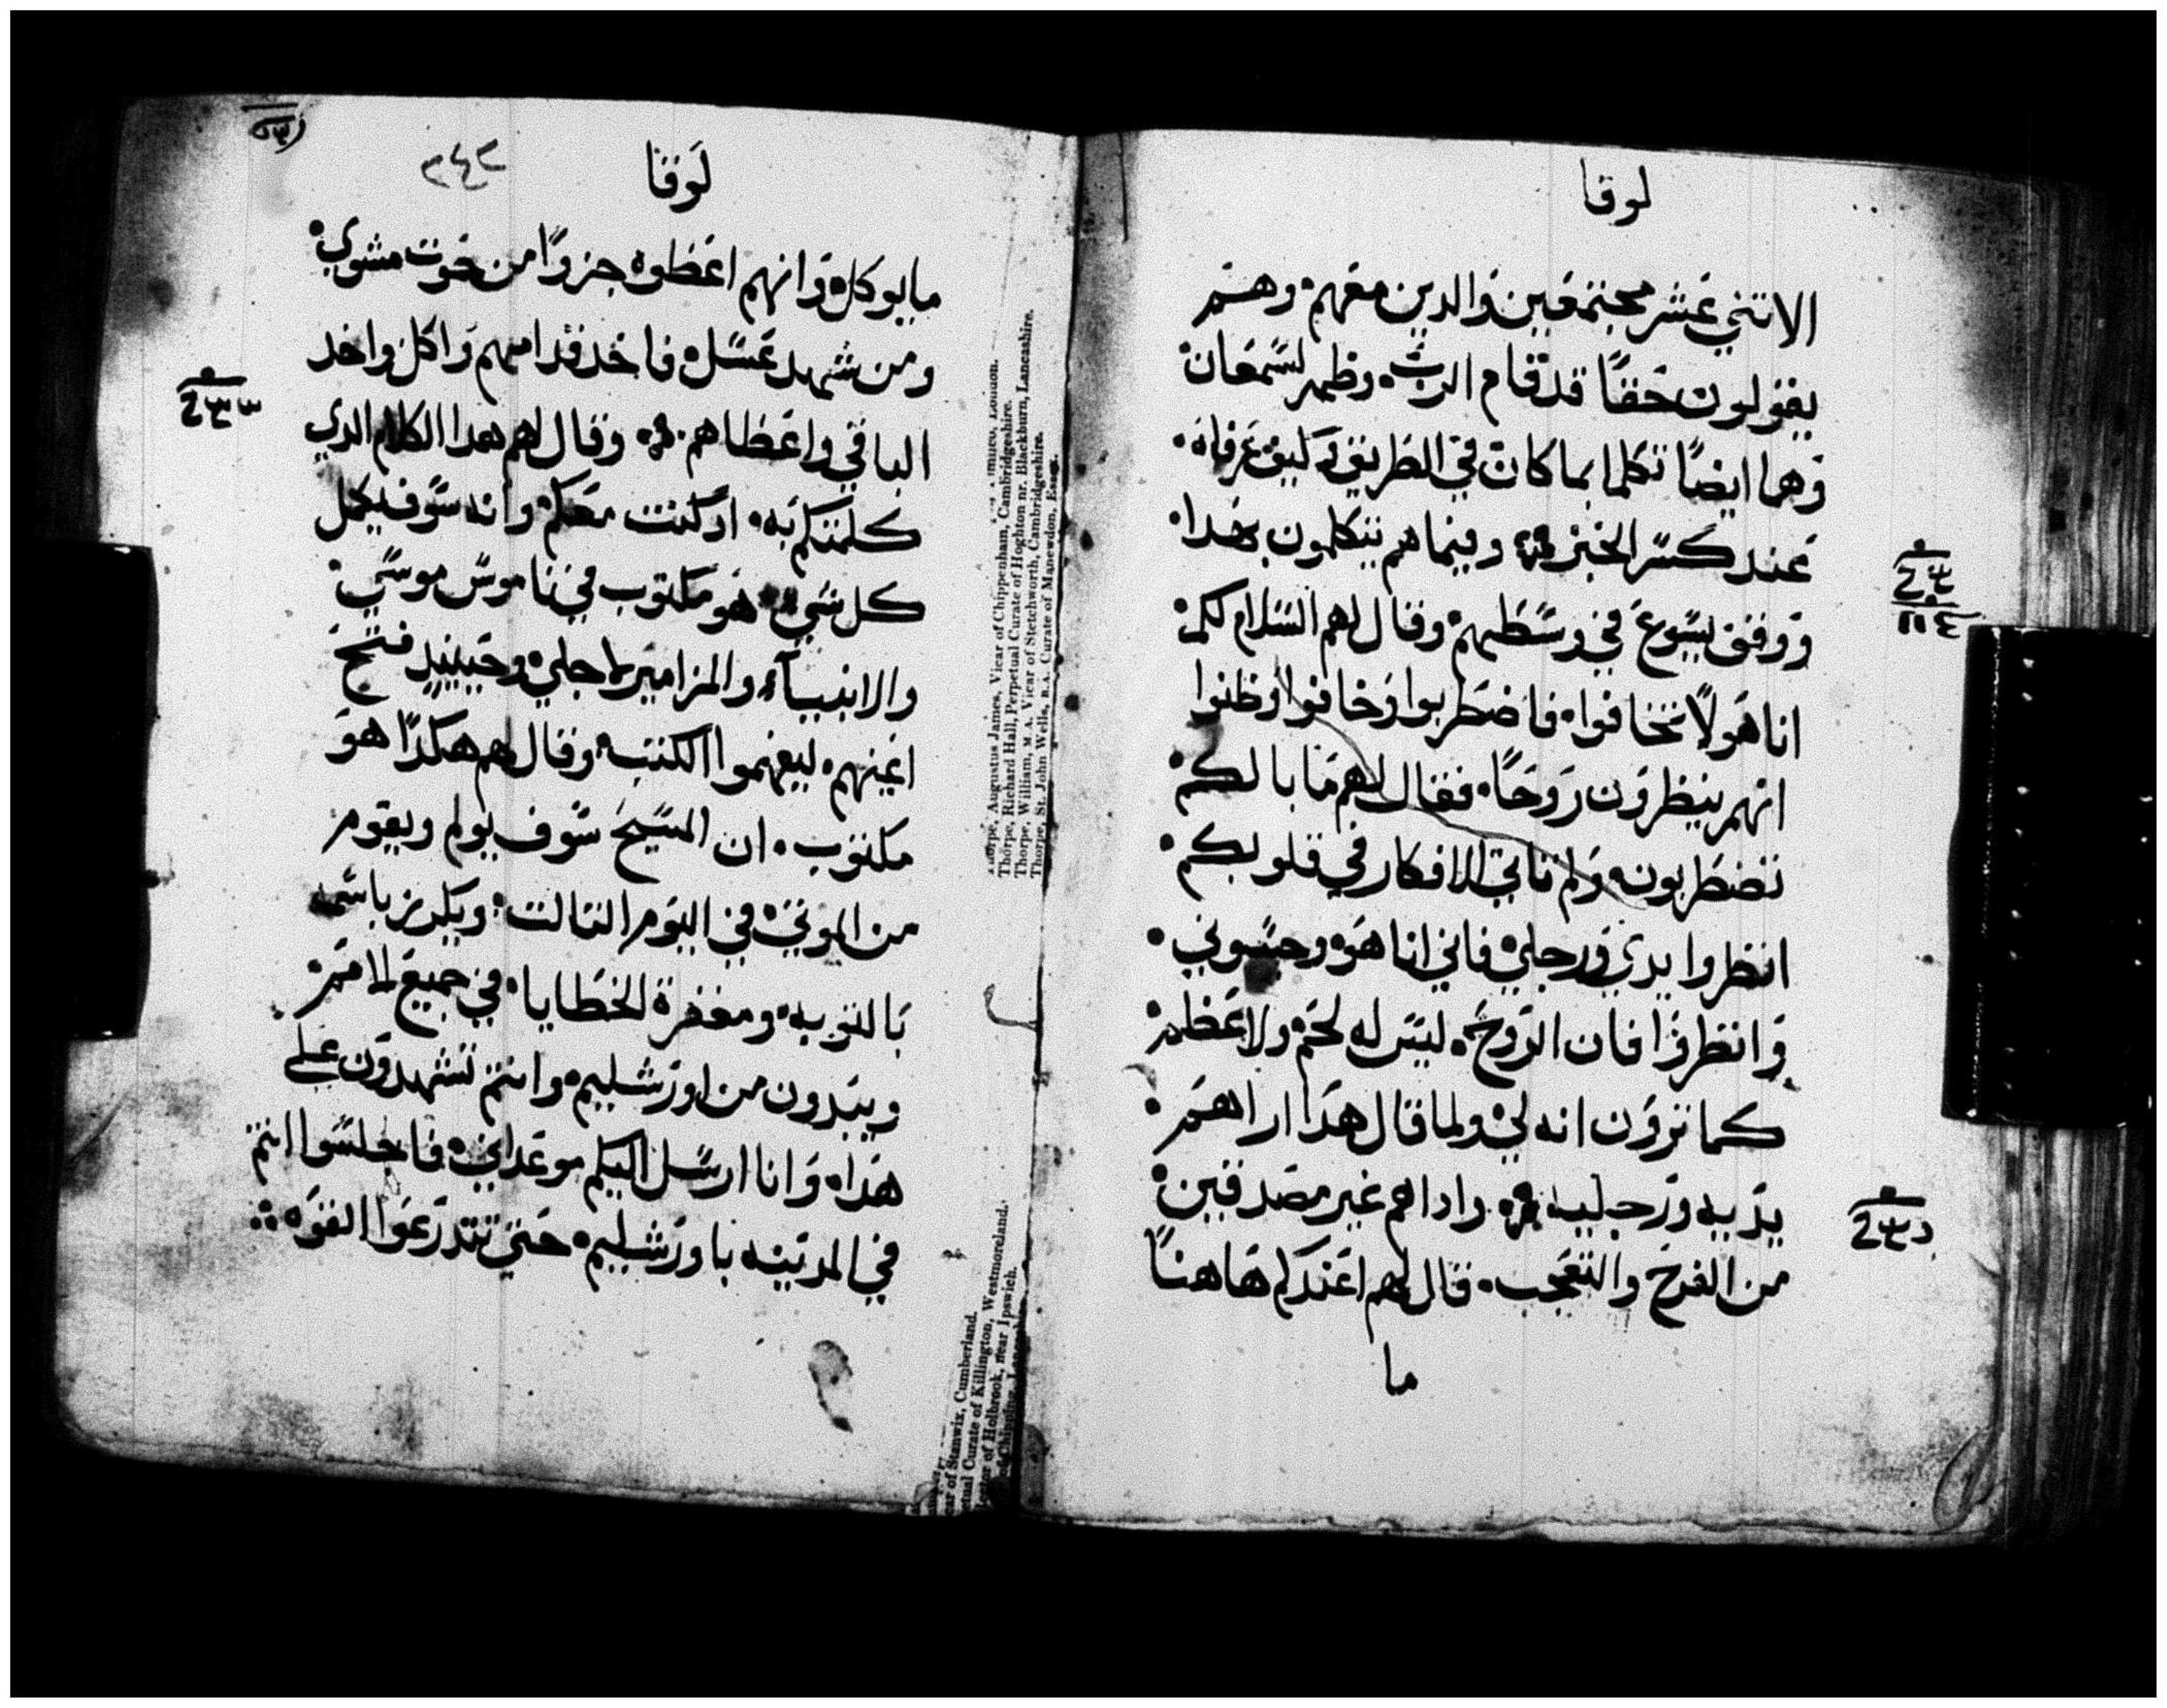 لوقا
الاتني عشر مجتمعين والدين معهم وهم
يقولون حقًا قد قام الرب وظهر لسمعان
وهما ايضًا تكلما بما كان في الطريق وكيف عرفاه
عند كسر الخبز وفيما هم يتكلمون بهدا
ووقف يسوع في وسطهم وقال لهم السلام لكم
انا هو لا تخافوا فاضطربوا وخافوا وظنوا
انهم ينظرون روحًا فقال لهم ما بالكم
تضطربون ولم تاتي الافكار في قلوبكم
انظروا يدي ورجلي فاني انا هو وحسوني
وانظروا فان الروح ليس له لحم ولا عظم
كما ترون انه لي ولما قال هدا اراهم
يديه ورجليه واداهم غير مصدقين
من الفرح والتعجب قال لهم اعندكم هاهنا
ما
لوقا
٢٤٢
مايوكل وانهم اعطوه جزوًا من حوت مشوي
ومن شهد عسل فاخد قدامهم واكل واخد
الباقي واعطاهم وقال لهم هدا الكلام الدي
كلمتكم به اد كنت معكم وانه سوف يكمل
كل شي هو مكتوب في ناموس موسي
والانبياء والمزامير لاجلي وحينيد فتح
اعينهم ليفهموا الكتب وقال لهم هكدا هو
مكتوب ان المسيح سوف يولم ويقوم
من الموتي في اليوم التالت ويكرز باسمه
بالتوبه ومغفرة الخطايا في جميع الامم
ويبدون من اورشليم وانتم تشهدون علي
هدا وانا ارسل اليكم موعد ابي فاجلسوا انتم
في المدينه باورشليم حتي تتدرعوا القوه
Thorpe, Augustus James, Vicar of Chippenham, Cambridgeshire.
Thorpe, Richard Hall, Perpetual Curate of Hoghton nr. Blackburn, Lancashire.
Thorpe, William, M.A. Vicar of Stetchworth, Cambridgeshire.
Thorpe, St. John Wells, B.A. Curate of Manewdon, Essex.
of Stanwix, Cumberland.
Curate of Killington, Westmoreland.
of Holbrook, near Ipswich.
of Chipping,